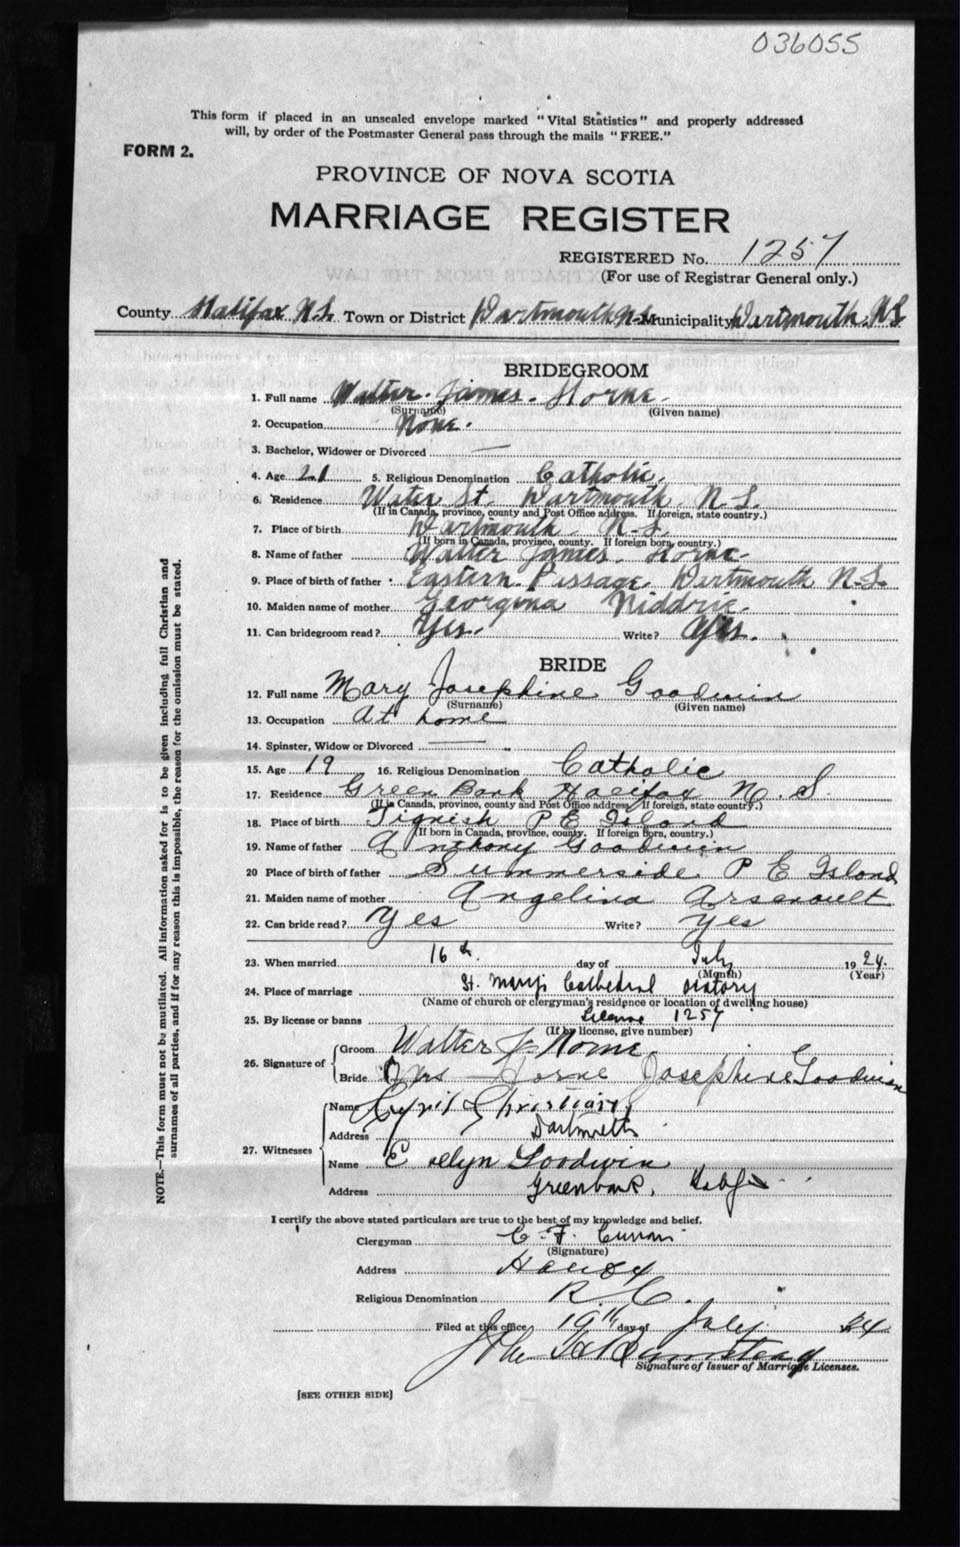 036055
This form if placed in an unsealed envelope marked "Vital Statistics" and properly addressed
will, by order of the Postmaster General pass through the mails "FREE."
FORM 2.
PROVINCE OF NOVA SCOTIA
MARRIAGE REGISTER
REGISTERED No. 1257
(For use of Registrar General only.)
County Halifax N.S. Town or District Dartmouth N.S. Municipality Dartmouth. N.S.
BRIDEGROOM
1. Full name Walter. James. Horne.
(Surname) (Given name)
2. Occupation None.
3. Bachelor, Widower or Divorced
4. Age 21 5. Religious Denomination Catholic.
6. Residence Water St. Dartmouth. N.S.
(If in Canada, province, county and Post Office address. If foreign, state country.)
7. Place of birth Dartmouth. N.S.
(If born in Canada, province, county. If foreign born, country.)
8. Name of father Walter James. Horne.
9. Place of birth of father Eastern. Passage. Dartmouth N.S.
10. Maiden name of mother Georgina Niddrie.
11. Can bridegroom read? Yes. Write? Yes.
BRIDE
12. Full name Mary Josephine Goodwin
(Surname) (Given name)
13. Occupation At home
14. Spinster, Widow or Divorced
15. Age 19 16. Religious Denomination Catholic
17. Residence Green Bank Halifax N. S.
(If in Canada, province, county and Post Office address. If foreign, state country.)
18. Place of birth Tignish P E Island
(If born in Canada, province, county. If foreign born, country.)
19. Name of father Anthony Goodwin
20 Place of birth of father Summerside P E Island
21. Maiden name of mother Angelina Arsenault
22. Can bride read? Yes Write? Yes
23. When married 16th. day of July 1924.
(Month) (Year)
24. Place of marriage St. Mary's Cathedral oratory
(Name of church or clergyman's residence or location of dwelling house)
25. By license or banns License 1257
(If by license, give number)
26. Signature of
Groom Walter J. Horne.
Bride Mrs Horne Josephine Goodwin
27. Witnesses
Name Cyril Christian
Address Dartmouth
Name Evelyn Goodwin
Address Greenbank, Halifax
I certify the above stated particulars are true to the best of my knowledge and belief.
Clergyman C. F. Curran
(Signature)
Address
Religious Denomination R. C.
Filed at this office 19th day of July 24
Signature of Issuer of Marriage Licenses.
[SEE OTHER SIDE]
NOTE.—This form must not be mutilated. All information asked for is to be given including full Christian and
surnames of all parties, and if for any reason this is impossible, the reason for the omission must be stated.